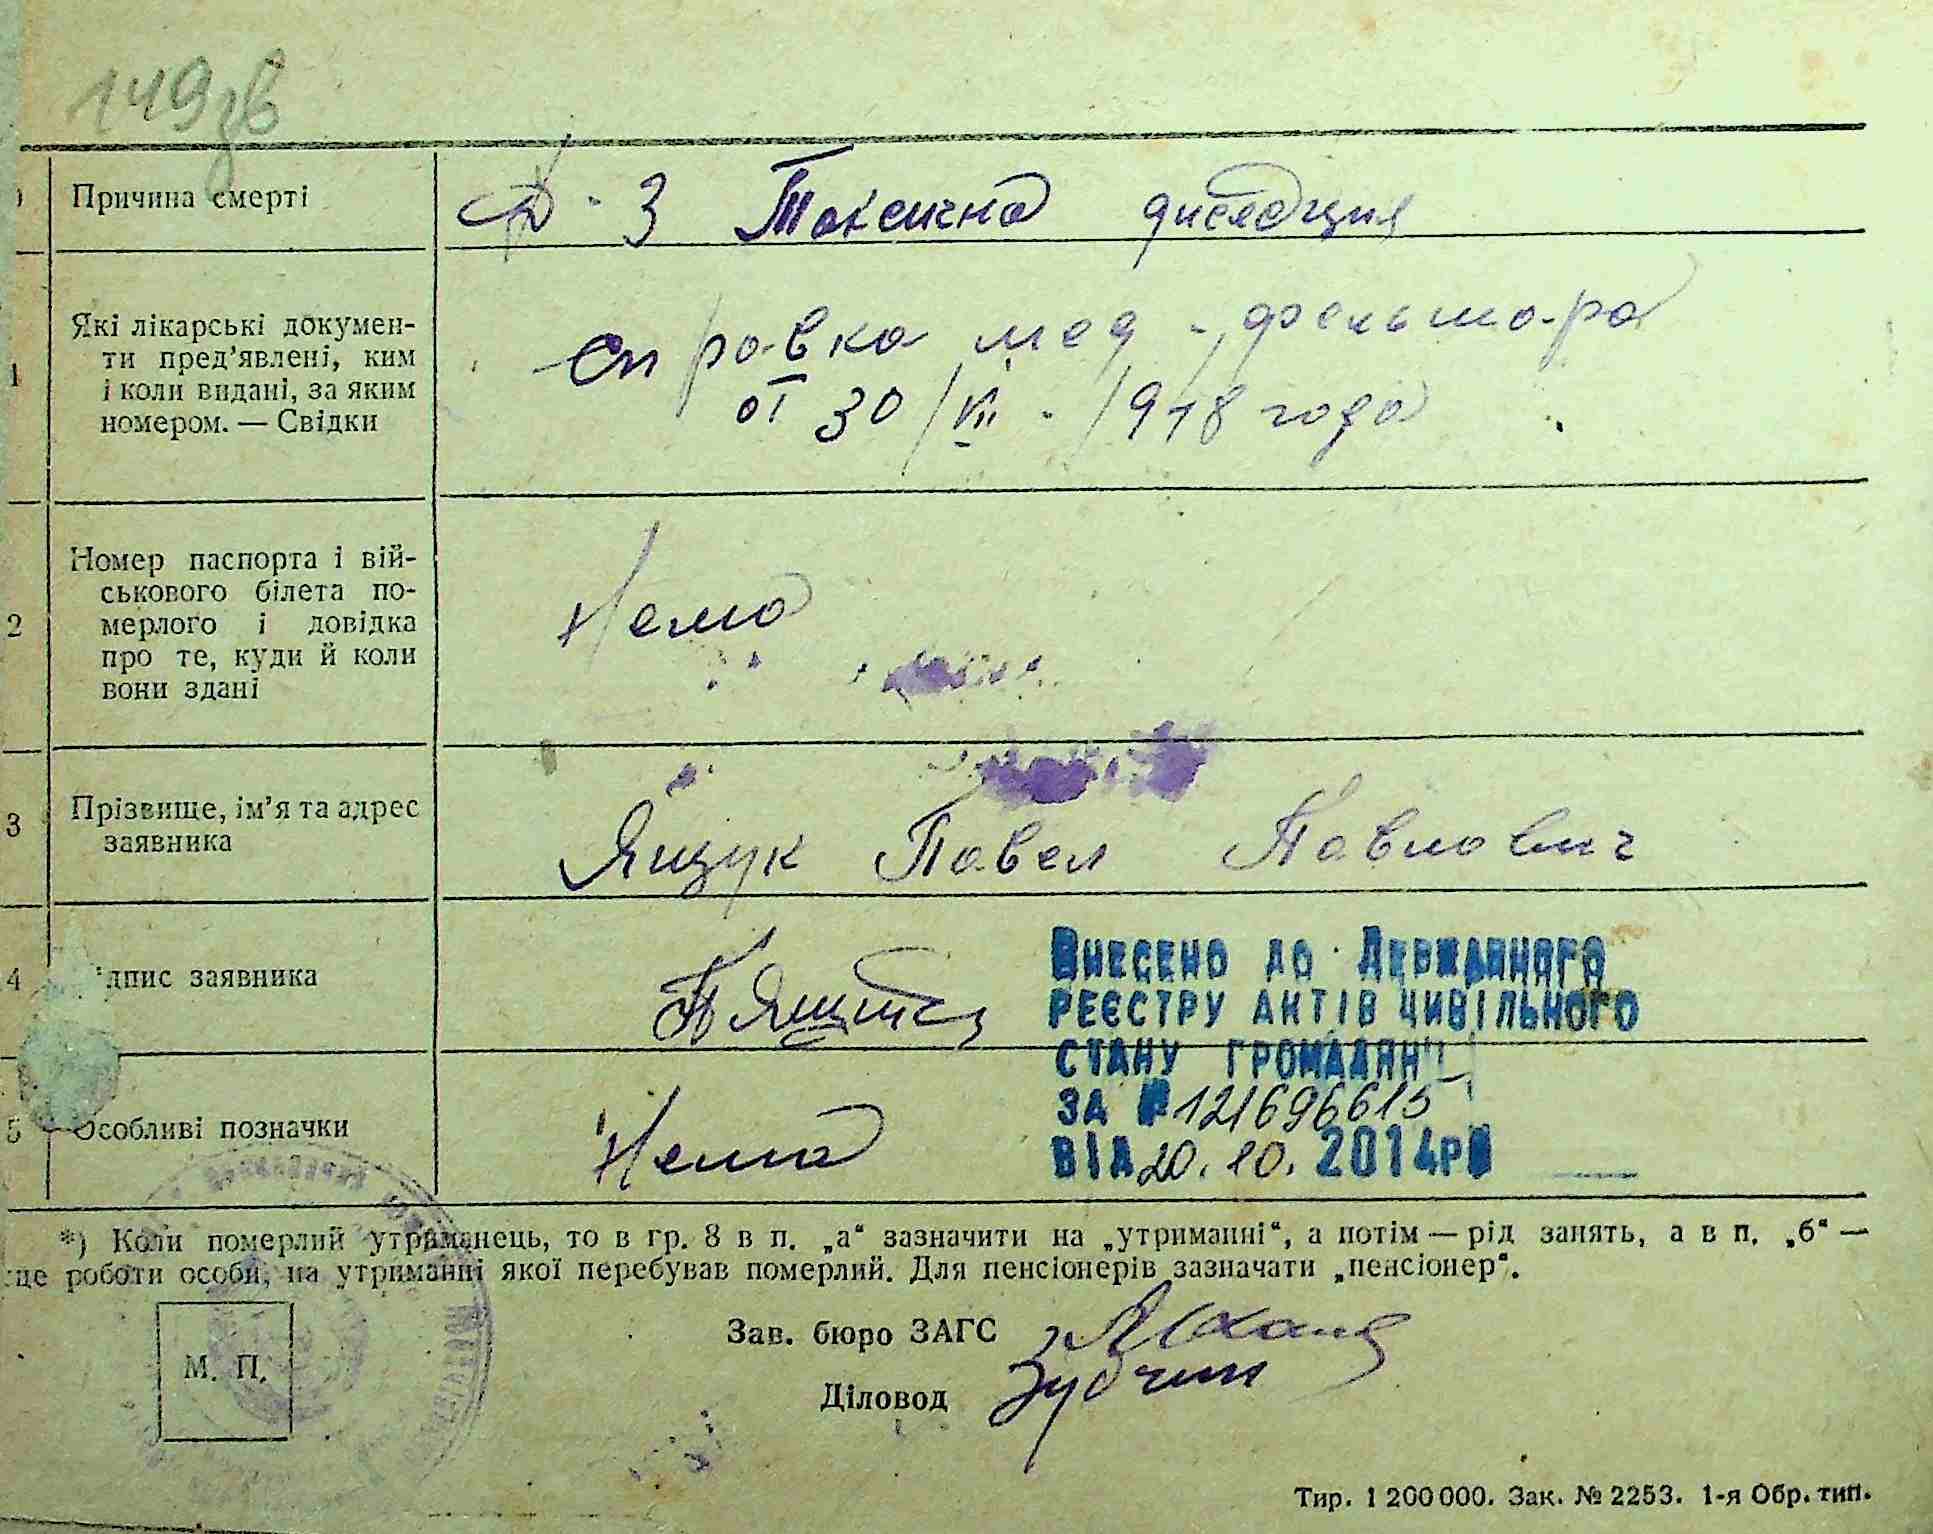 149зв
Причина смерті
Д-з Токсична
Які лікарські докумен-
ти пред'явлені, ким
1 і коли видані, за яким
номером. — Свідки
справка мед. фельшора
от 30/VII - 1948 года
Номер паспорта і вій-
ськового білета по-
2 мерлого і довідка
про те, куди й коли
вони здані
Нема
3 Прізвище, ім'я та адрес
заявника
Ящук Павел Павлович
4 ідпис заявника
П Ящук
Внесено до Державного
реєстру актів цивільного
стану громадян
за № 121696615
від 20.10.2014р
5 Особливі позначки
Нема
*) Коли померлий утриманець, то в гр. 8 в п. „а“ зазначити на „утриманні“, а потім — рід занять, а в п. „б“ —
це роботи особи, на утриманні якої перебував померлий. Для пенсіонерів зазначати „пенсіонер“.
М. П.
Зав. бюро ЗАГС
Діловод
Тир. 1 200 000. Зак. № 2253. 1-я Обр. тип.